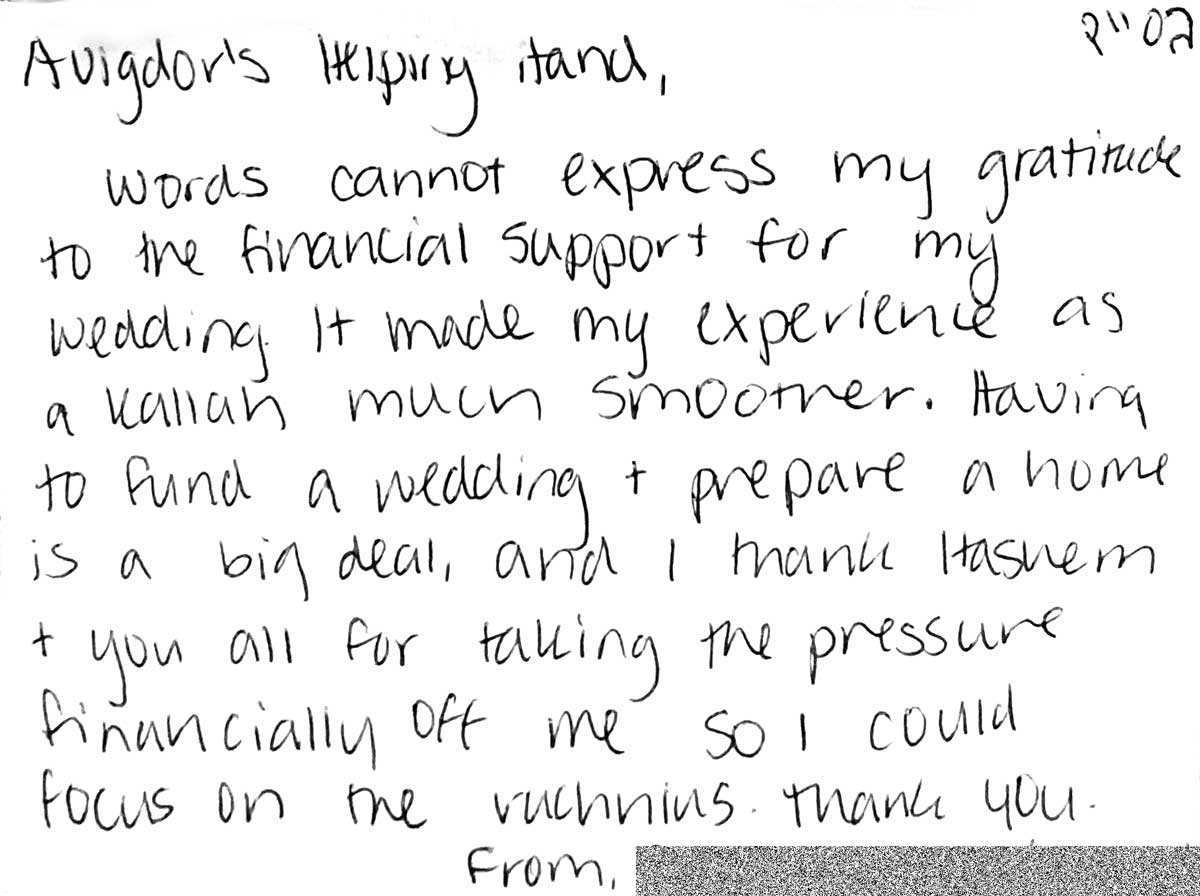 בס"ד
Avigdor's Helping Hand,
words cannot express my gratitude
to the financial support for my
wedding. It made my experience as
a kallah much smoother. Having
to fund a wedding + prepare a home
is a big deal, and I thank Hashem
+ you all for taking the pressure
financially off me so I could
focus on the ruchnius. Thank you.
From,